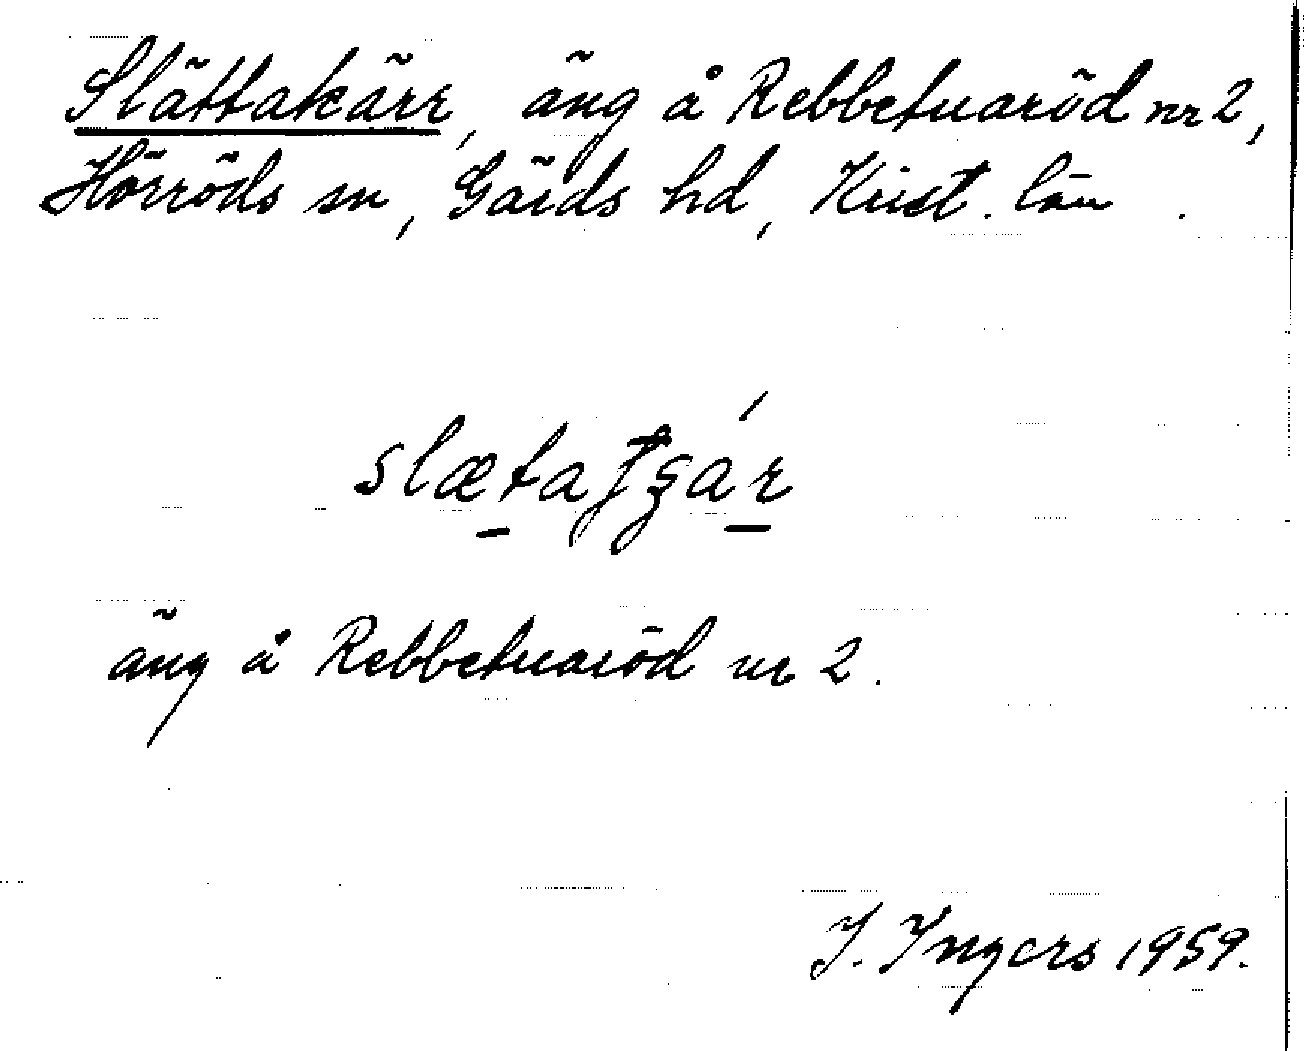 Slättakärr, äng å Rebbetuaröd nr 2,
Hörröds sn, Gärds hd, Krist. län.
äng å Rebbetuaröd nr 2.
I. Ingers 1959.